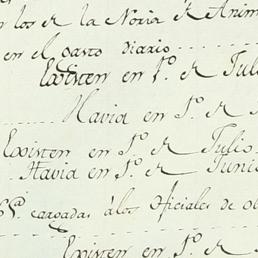 los de la Noria de Anim
en el gasto diario
Existen en 1º. de Juli
Havia en 1º. de
Existen en 1º. de Julio
Havia en 1º. de Juni
cargadas álos Oficiales de
Existen en 1º. de